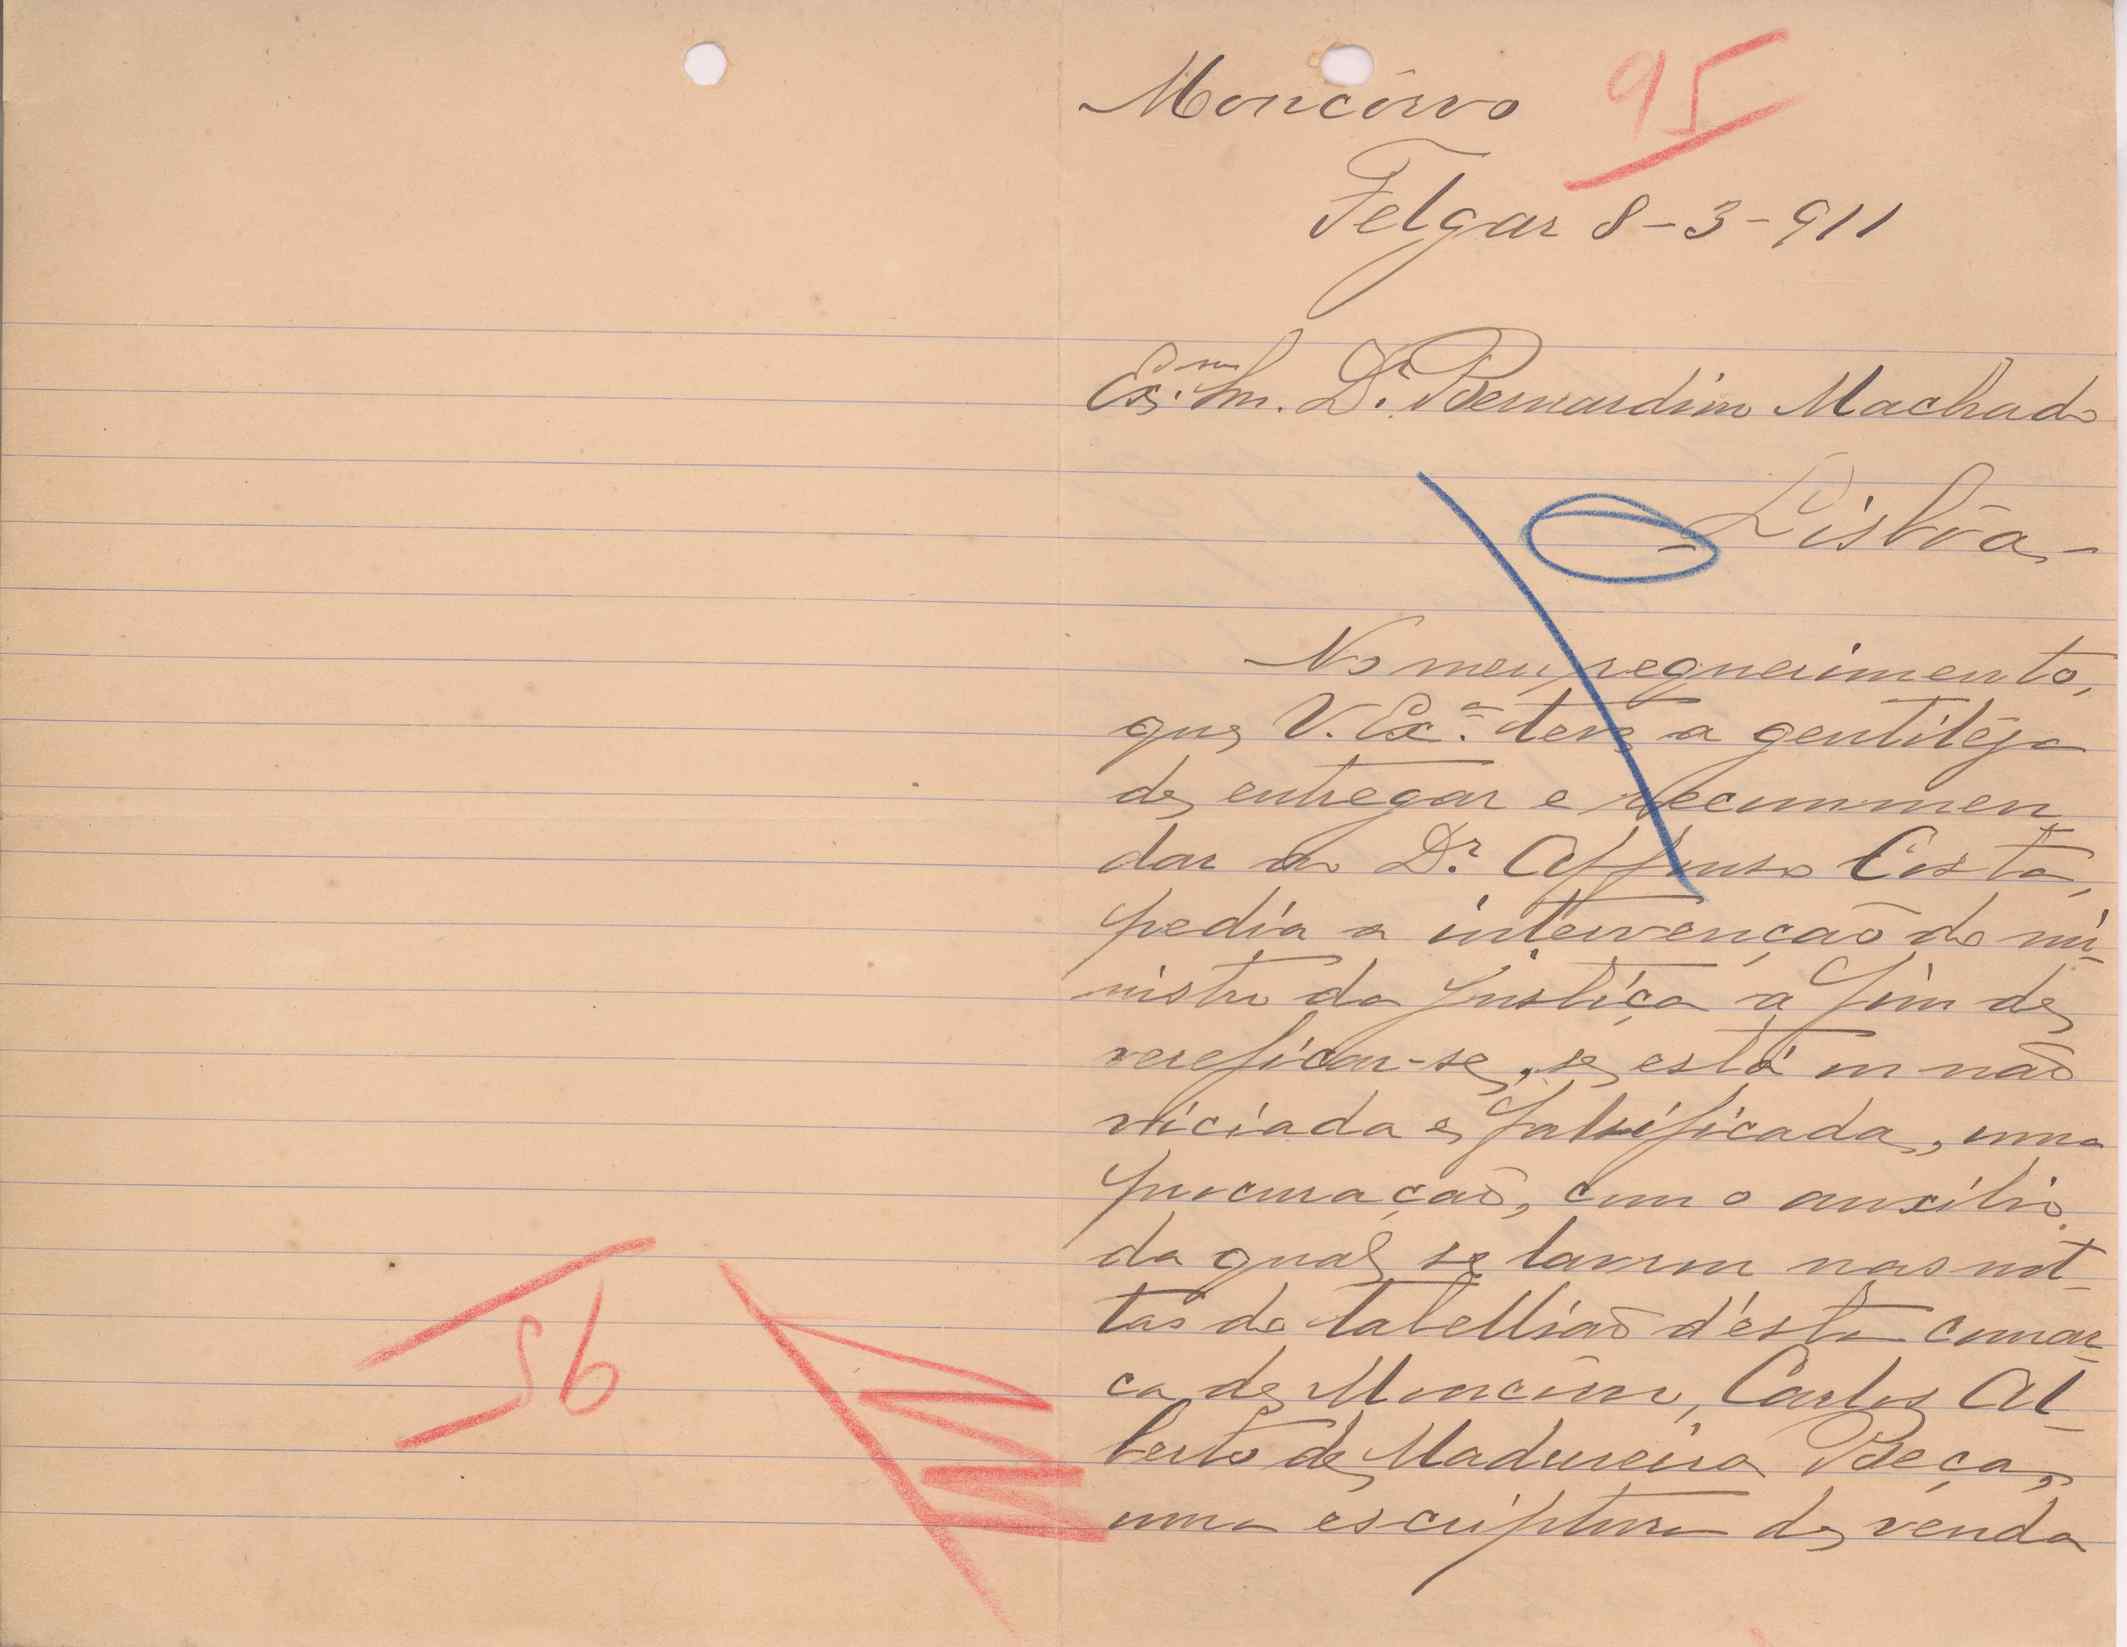 95
Moncôrvo
Felgar 8-3-911
Ex.mo Snr. Dr. Bernardino Machado
-Lisbôa-
No meu requerimento,
que V. Ex.ª teve a gentilêza
de entregar e recommen
dar ao Dr. Affonso Costa,
pedia a intervenção do mi-
nistro da Justiça a fim de
vereficar-se, se está ou não
viciada e falsificada, uma
procuração, com o auxilio
da qual se lavrou nas not-
tas do tabellião d'ésta comar-
ca de Moncôrvo, Carlos Al-
berto de Madureira Beça,
uma escriptura de venda
95